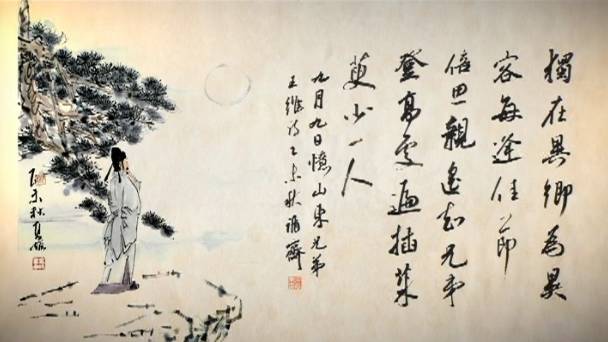 獨在異鄉為異
客每逢佳節
倍思親遙知兄弟
登高處遍插茱
萸少一人
九月九日憶山東兄弟
王維詩乙未秋
乙未秋